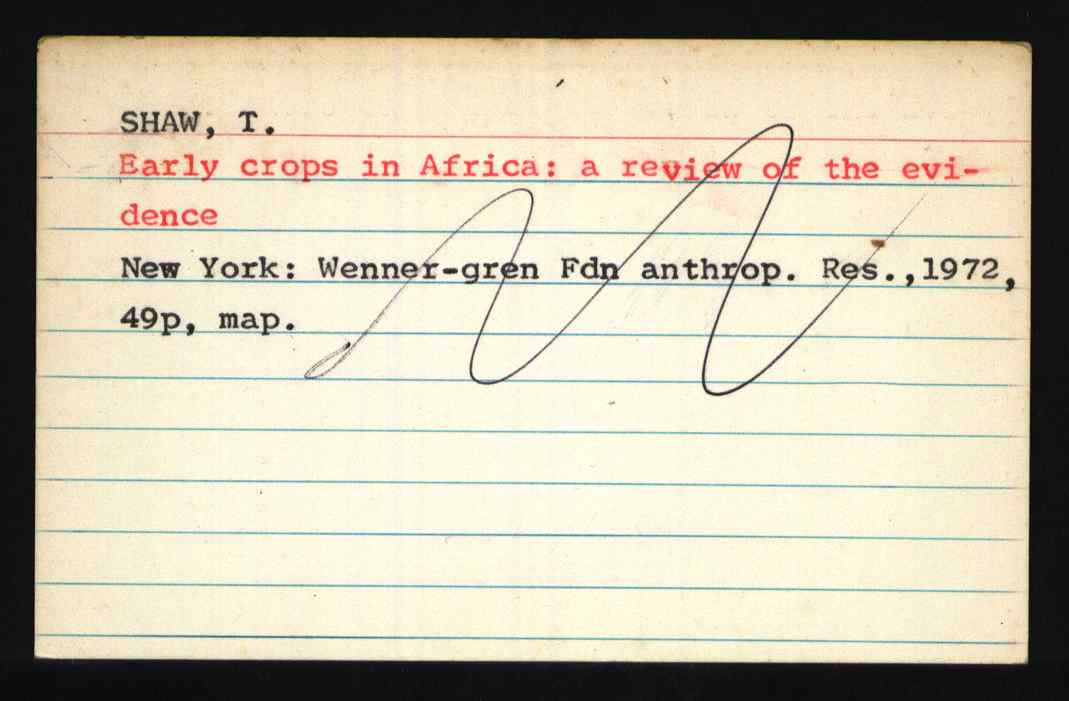 SHAW, T.
Early crops in Africa: a review of the evi-
dence
New York: Wenner-gren Fdn anthrop. Res.,1972,
49p, map.